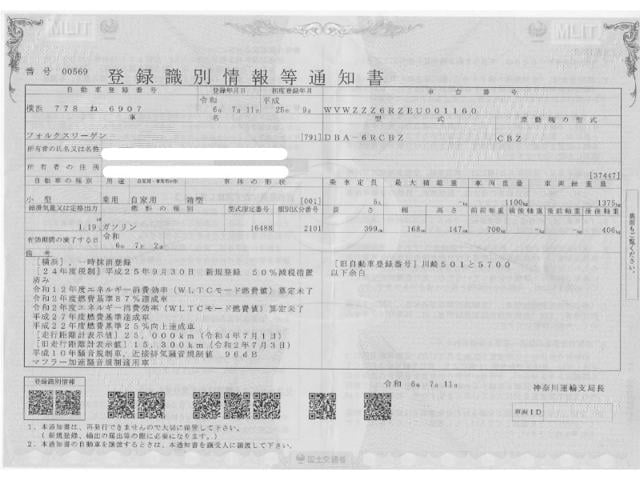 MLIT
MLIT
番号 00569
登録識別情報等通知書
自動車登録番号 登録年月日 初度登録年月 車台番号
令和 平成
横浜 778 ね 6907 6年 7月11日 25年 9月 WVWZZZ6RZEU001160
車名 型式 原動機の型式
フォルクスワーゲン [791] DBA-6RCBZ CBZ
所有者の氏名又は名称
所有者の住所
[37447]
自動車の種別 用途 自家用・事業用の別 車体の形状 乗車定員 最大積載量 車両重量 車両総重量
小型 乗用 自家用 箱型 [001] 5人 -kg 1100kg 1375kg
総排気量又は定格出力 燃料の種類 型式指定番号 類別区分番号 長さ 幅 高さ 前前軸重 前後軸重 後前軸重 後後軸重
1.19 ガソリン 16488 2101 399cm 168cm 147cm 700kg -kg -kg 406kg
有効期間の満了する日 令和
6年 7月 2日
備考
[横浜],一時抹消登録 [旧自動車登録番号]川崎501と5700
[24年度税制]平成25年9月30日 新規登録 50%減税措置 以下余白
済み
令和12年度エネルギー消費効率(WLTCモード燃費値)算定未了
令和2年度燃費基準87%達成車
令和2年度エネルギー消費効率(WLTCモード燃費値)算定未了
平成27年度燃費基準達成車
平成22年度燃費基準25%向上達成車
[走行距離計表示値]25,000km(令和4年7月1日)
[旧走行距離計表示値]15,300km(令和2年7月3日)
平成10年騒音規制車,近接排気騒音規制値 96dB
マフラー加速騒音規制適用車
裏面もご覧ください。
登録識別情報
令和 6年 7月11日 神奈川運輸支局長
車両ID
1.本通知書は、再発行できませんので大切に保管して下さい。
(新規登録、輸出の届出等の際に必要になります。)
2.本通知書の自動車を譲渡するときは、本通知書を譲受人に譲渡して下さい。
国土交通省